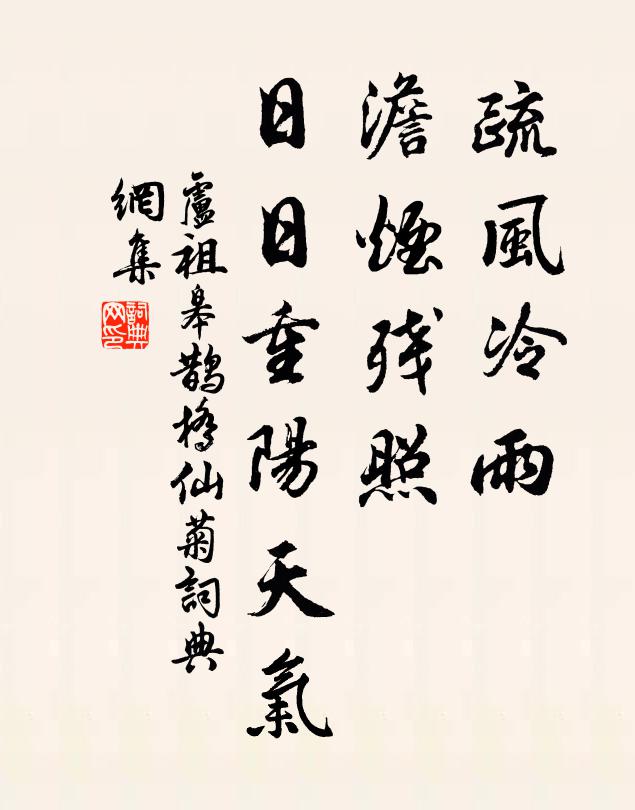 疏風冷雨
澹煙殘照
日日重陽天氣
盧祖皋鵲橋仙菊詞典
網集
詞典
网印